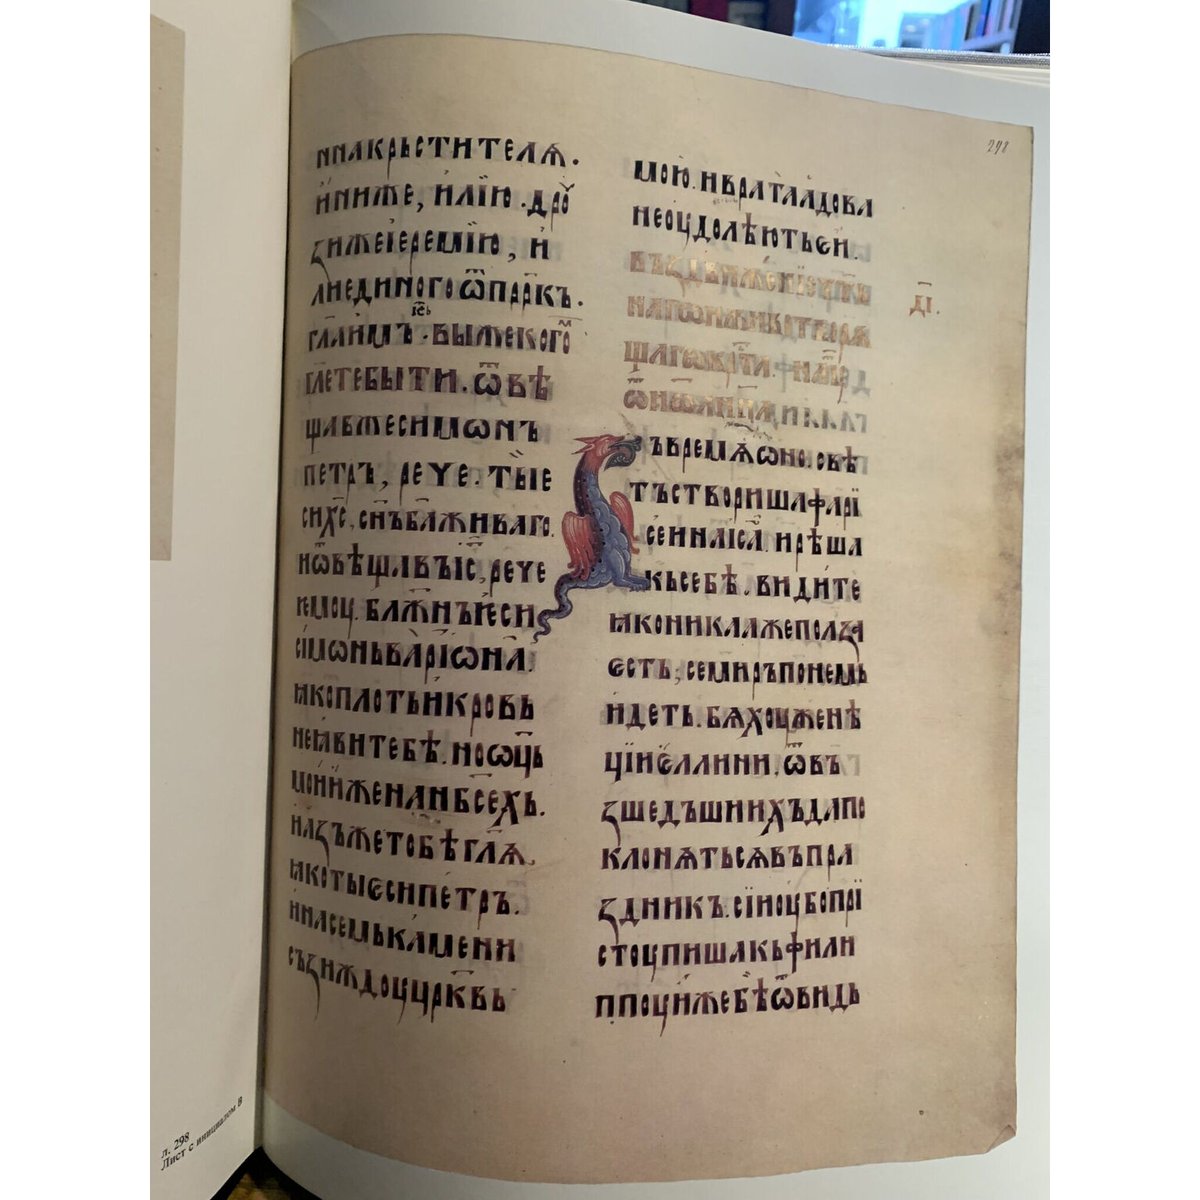 ꙇнакрьстителѧ.
иниже, илїю. дрѹ
зижеїеремїю, и
лиединогоѿпррк҃ъ.
гл҃аимъ. їс҃ъ выжекого
гл҃етебыти. ѿвѣ
щавжесимѡнъ
петръ, рече. тыие
сихс҃, сн҃ъба҃живаго.
иѿвѣщавъїс҃, рече
иемоу. блаж҃нъиеси
сїмѡньварїѡна.
ꙗкоплотьикровь
неꙗвитебѣ. ноѡц҃ь
мойиженан҃бсехь.
иазъжетобѣгл҃ѧ.
ꙗкотыѥсипетръ.
инасемькамени
съзиждоуцр҃квь
298
мою. ивратаадова
неоудолѣютьѥи.
дї.
ъвремѧѡно. свѣ
тъстворишафарї
сеинаіс҃а. ирѣша
кьсебѣ. видите
ꙗконикаяжеполза
ѥсть, семиръпонемь
идеть. бѧхоуженѣ
цїиѥллини. ѿвъ
зшедъшиихъдапо
клонѧтьсѧвъпра
здникъ. сїиоубопрї
стоупишакьфили
ппоуижебѣѿвидь
л. 298
Лист с инициалом В